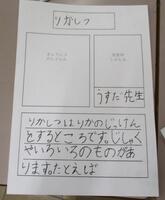 りかしつ
うすだ先生
りかしつはりかのじっけん
をするところです。じしゃく
やいろいろのものがあ
ります。たとえば